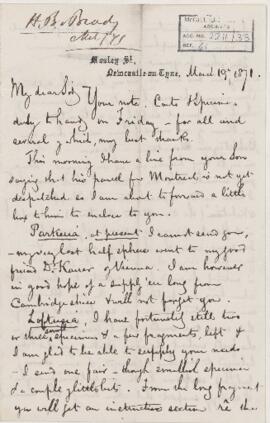 H. B. Brady
Mosley St.,
Newcastle-on-Tyne, March 19, 1871.
My dear Sir,
Your note, Cuts & Specimens
duly to hand, on Friday – for all and
several which, my best thanks.
This morning I have a line from your Son
saying that his parcel for Montreal is not yet
despatched so I am about to forward a little
box to him to enclose to you.
Parkeria, at present I cannot send you,
– my very last half sphere went to my good
friend Dr. Karrer of Vienna. I am however
in good hope of a supply 'ere long from
Cambridgeshire & will not forget you.
Loftusia, I have fortunately still two
or three small specimens & a few fragments, left &
I am glad to be able to supply your needs
– I send one fair – though small specimen
& a couple of little bits. From the long fragment
you will get an instructive section re the